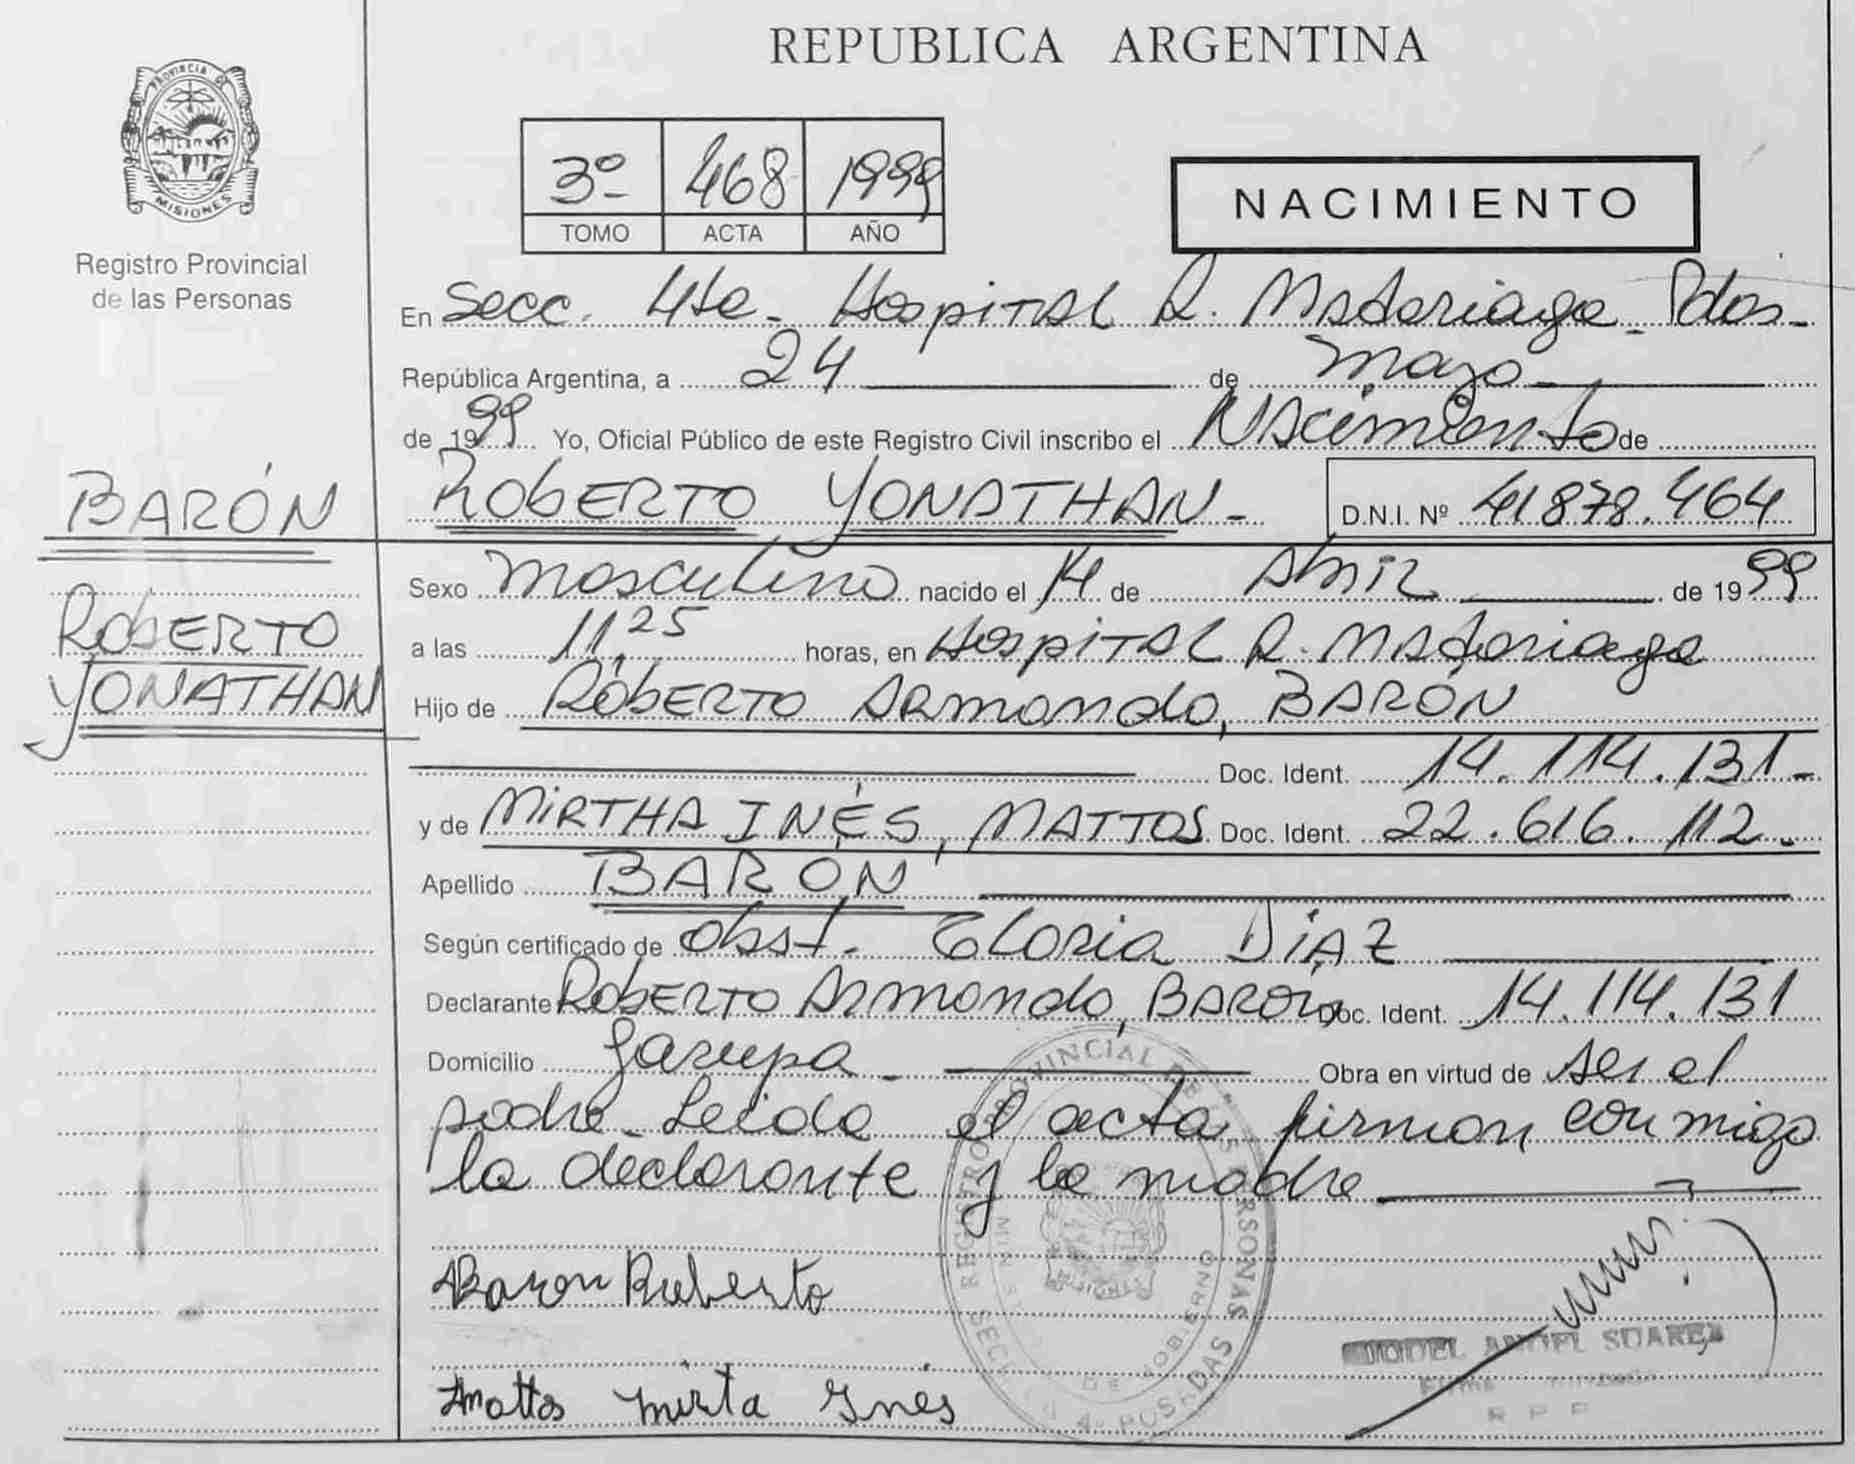 REPUBLICA ARGENTINA
PROVINCIA DE
MISIONES
Registro Provincial
de las Personas
3º 468 1999
TOMO ACTA AÑO
NACIMIENTO
En Secc. 4ta - Hospital R. Madariaga - Pdas -
República Argentina, a 24 de mayo
de 1999 Yo, Oficial Público de este Registro Civil inscribo el Nacimiento de
BARÓN
ROBERTO YONATHAN - D.N.I. Nº 41878.464
Sexo masculino nacido el 14 de Abril de 1999
ROBERTO
YONATHAN
a las 11,25 horas, en Hospital R. Madariaga
Hijo de ROBERTO Armando, BARÓN
Doc. Ident. 14.114.131 -
y de MIRTHA INÉS, MATTOS Doc. Ident. 22.616.112 -
Apellido BARÓN
Según certificado de obst. Gloria DÍAZ
Declarante ROBERTO Armando, BARÓN Doc. Ident. 14.114.131
Domicilio Garupa - Obra en virtud de ser el
padre - Leida el acta firman conmigo
la declarante y la madre
Baron Roberto
Mattos Mirta Ines
REGISTRO PROVINCIAL DE LAS PERSONAS
DE GOBIERNO
4ª POSADAS
ANGEL SUAREZ
R P P